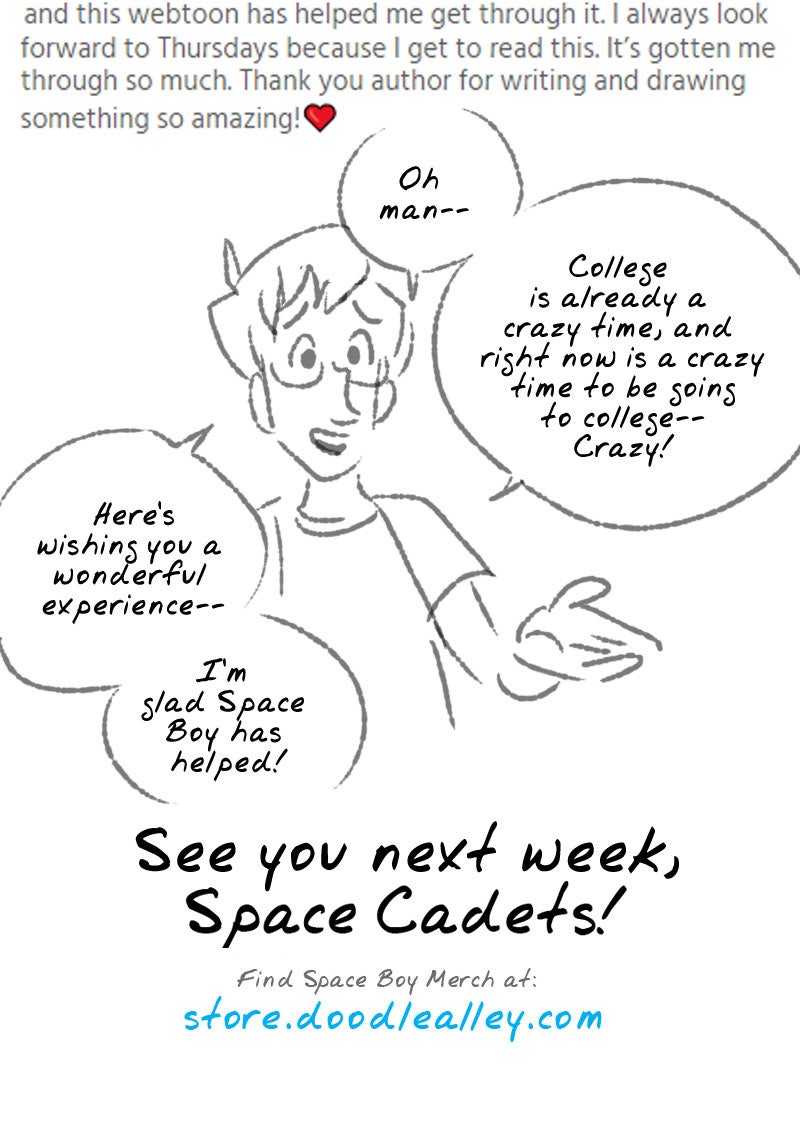 and this webtoon has helped me get through it. I always look
forward to Thursdays because I get to read this. It's gotten me
through so much. Thank you author for writing and drawing
something so amazing!❤️
Oh
man--
College
is already a
crazy time, and
right now is a crazy
time to be going
to college--
Crazy!
Here's
wishing you a
wonderful
experience--
I'm
glad Space
Boy has
helped!
See you next week,
Space Cadets!
Find Space Boy Merch at:
store.doodlealley.com